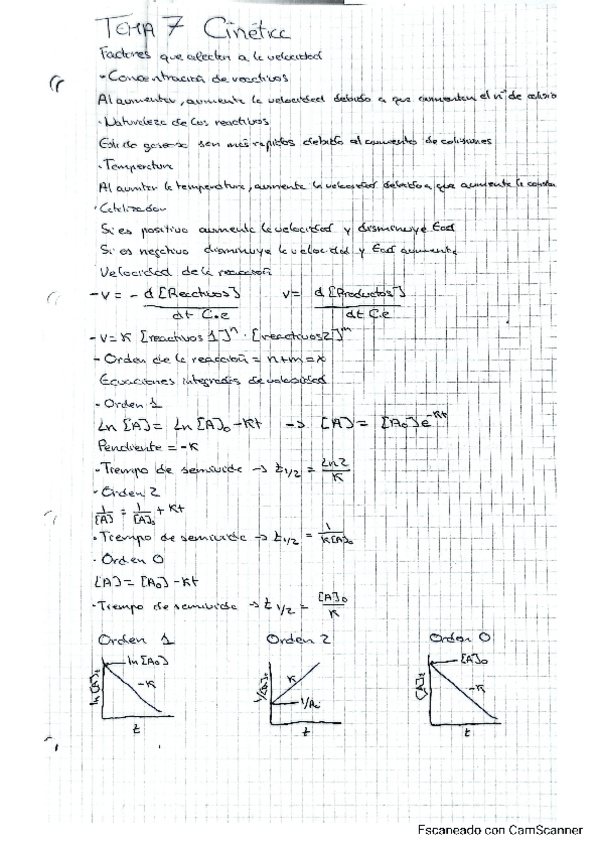 TEMA 7 Cinética
Factores que afectan a la velocidad
- Concentración de reactivos
Al aumentar, aumenta la velocidad debido a que aumentan el nº de colisio
· Naturaleza de los reactivos
general son más rápidos debido al aumento de colisiones
· Temperatura
Al aumtar la temperatura, aumenta la velocidad debido a que aumenta la constan
· Catalizador
Si es positivo aumenta la velocidad y disminuye Eact
Si es negativo disminuye la velocidad y Eact aumenta
Velocidad de la reacción
- v = - d[Reactivos] / dt C.e v = d[Productos] / dt C.e
- v = K [reactivos 1]^n · [reactivos 2]^m
- Orden de la reacción = n+m = x
Ecuaciones integradas de velocidad
· Orden 1
Ln [A] = Ln [A]₀ - Kt -> [A] = [A₀] e^-Kt
Pendiente = -K
· Tiempo de semivida -> t1/2 = Ln2 / K
· Orden 2
1/[A] = 1/[A]₀ + Kt
· Tiempo de semivida -> t1/2 = 1 / K[A]₀
· Orden 0
[A] = [A₀] - Kt
· Tiempo de semivida -> t1/2 = [A]₀ / K
Orden 1 Orden 2 Orden 0
ln[A]t ln[A₀] -K t
1/[A]t K t
[A]t [A]₀ -K t
Escaneado con CamScanner